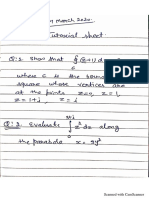 March 2020
Tutorial sheet
Q:1 Show that ∮(z+1) dz
where C is the
square whose vertices are
at the points z=0, z=1,
z=1+i, z=i
Q:2 Evaluate ∫ z² dz along
the parabola x = 2y²
Scanned with CamScanner